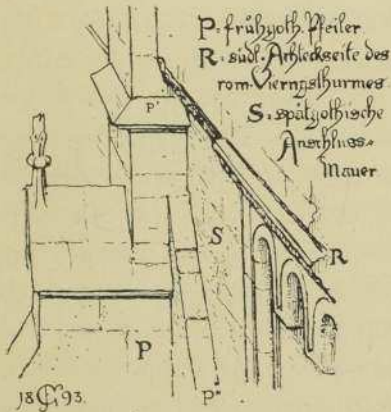 P = frühgoth. Pfeiler
R = südl. Achteckseite des
rom. Vierungsthurmes
S = spätgothische
Anschluss=
Mauer
P'
S
R
P
P"
18 G 93.